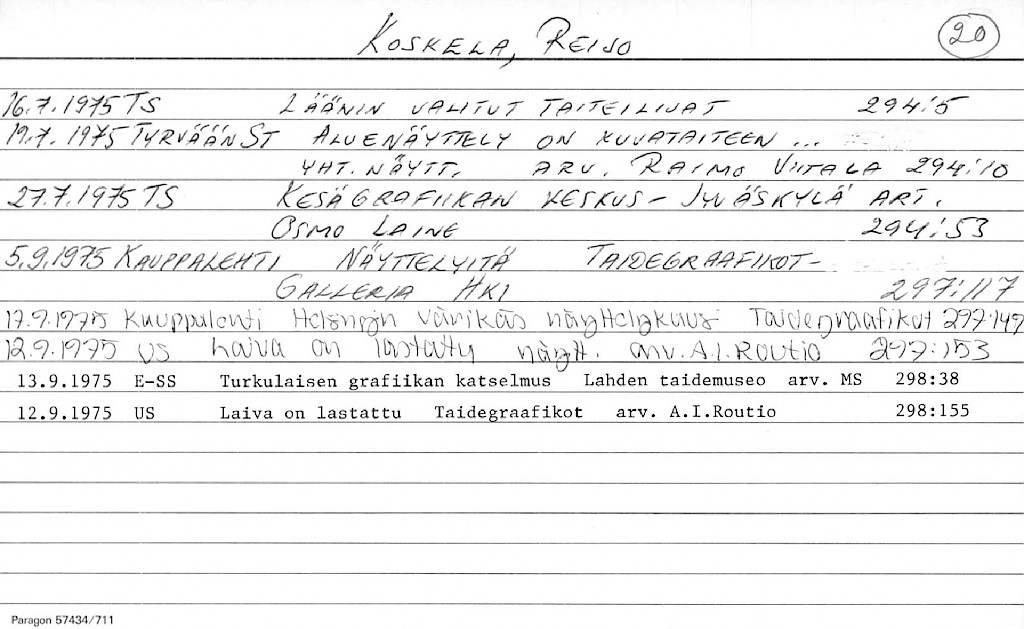 KOSKELA, REIJO 20
16.7.1975 TS LÄÄNIN VALITUT TAITEILIJAT 294:5
19.7.1975 TYRVÄÄN ST ALUENÄYTTELY ON KUVATAITEEN ...
YHT. NÄYTT. ARV. RAIMO VIITALA 294:10
27.7.1975 TS KESÄGRAFIIKAN KESKUS - JYVÄSKYLÄ ART.
OSMO LAINE 294:53
5.9.1975 KAUPPALEHTI NÄYTTELYITÄ TAIDEGRAAFIKOT -
GALLERIA HKI 297:117
17.9.1975 Kauppalehti Helsingin värikäs näyttelykausi Taidegraafikot 297:149
12.9.1975 US Laiva on lastattu näytt. arv. A.I. Routio 297:153
13.9.1975 E-SS Turkulaisen grafiikan katselmus Lahden taidemuseo arv. MS 298:38
12.9.1975 US Laiva on lastattu Taidegraafikot arv. A.I.Routio 298:155
Paragon 57434/711